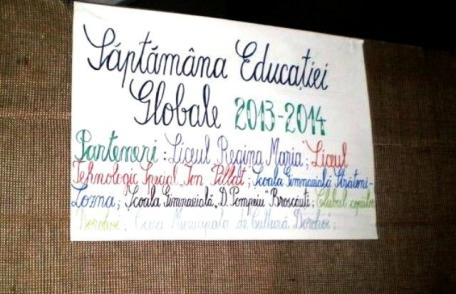 Săptămâna Educației
Globale 2013-2014
Parteneri: Liceul Regina Maria; Liceul
Tehnologic Special "Ion Pillat"; Școala Gimnazială Străteni-
Lozna; Școala Gimnazială "D. Pompeiu" Broscăuți; Clubul copiilor
Dorohoi; Casa Municipală de Cultură Dorohoi;